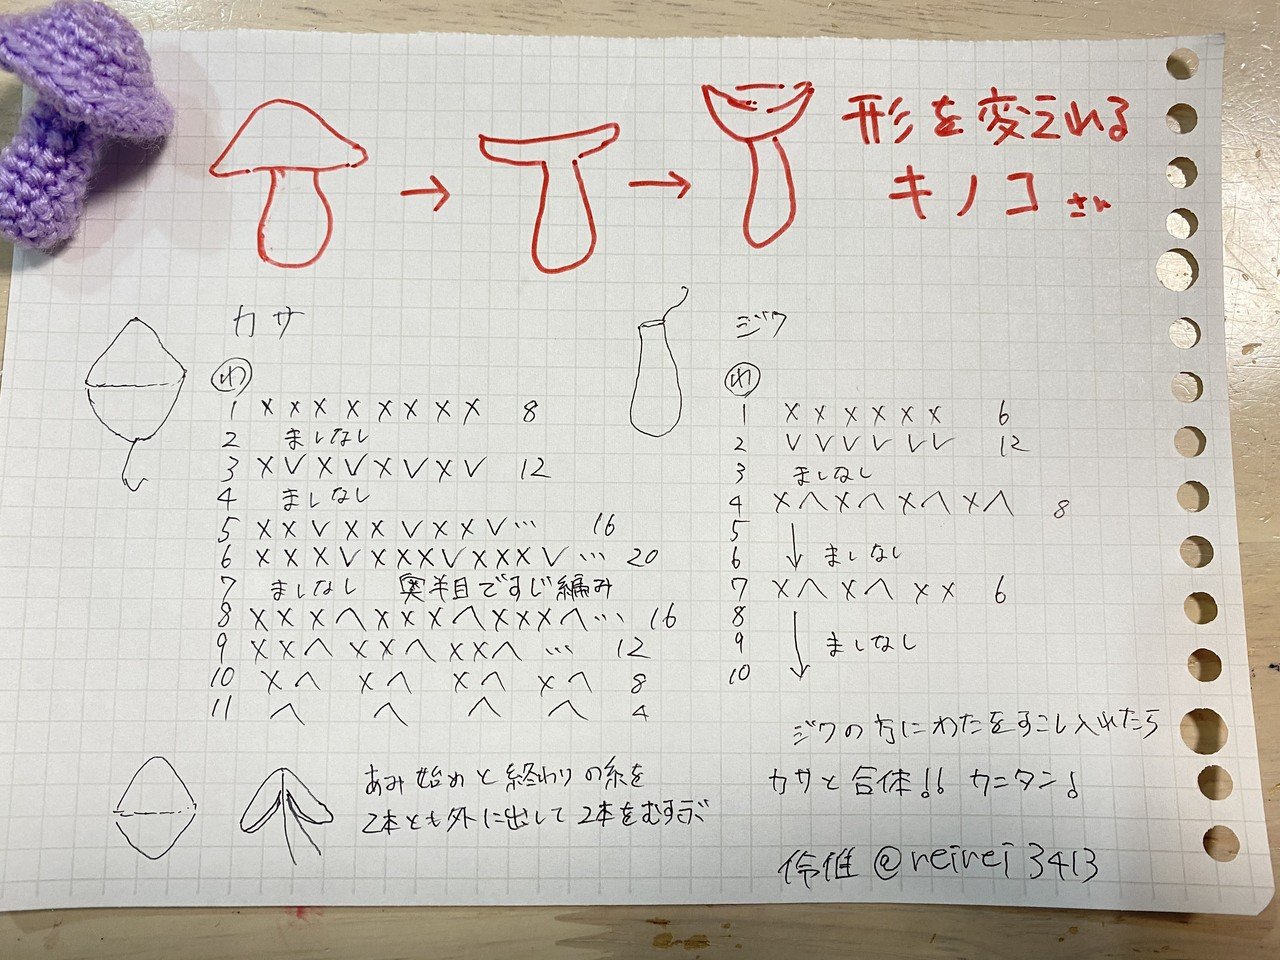 形を変えれる
キノコさん
カサ
わ
1 X X X X X X X X 8
2 ましなし
3 X V X V X V X V 12
4 ましなし
5 X X V X X V X X V … 16
6 X X X V X X X V X X X V … 20
7 ましなし 奥半目ですじ編み
8 X X X へ X X X へ X X X へ … 16
9 X X へ X X へ X X へ … 12
10 X へ X へ X へ X へ 8
11 へ へ へ へ 4
あみ始めと終わりの糸を
2本とも外に出して2本をむすぶ
ジク
わ
1 X X X X X X 6
2 V V V V V V 12
3 ましなし
4 X へ X へ X へ X へ 8
5
6 ↓ ましなし
7 X へ X へ X X 6
8
9 ↓ ましなし
10
ジクの方にわたをすこし入れたら
カサと合体!! カンタン♪
伶惟 @reirei3413